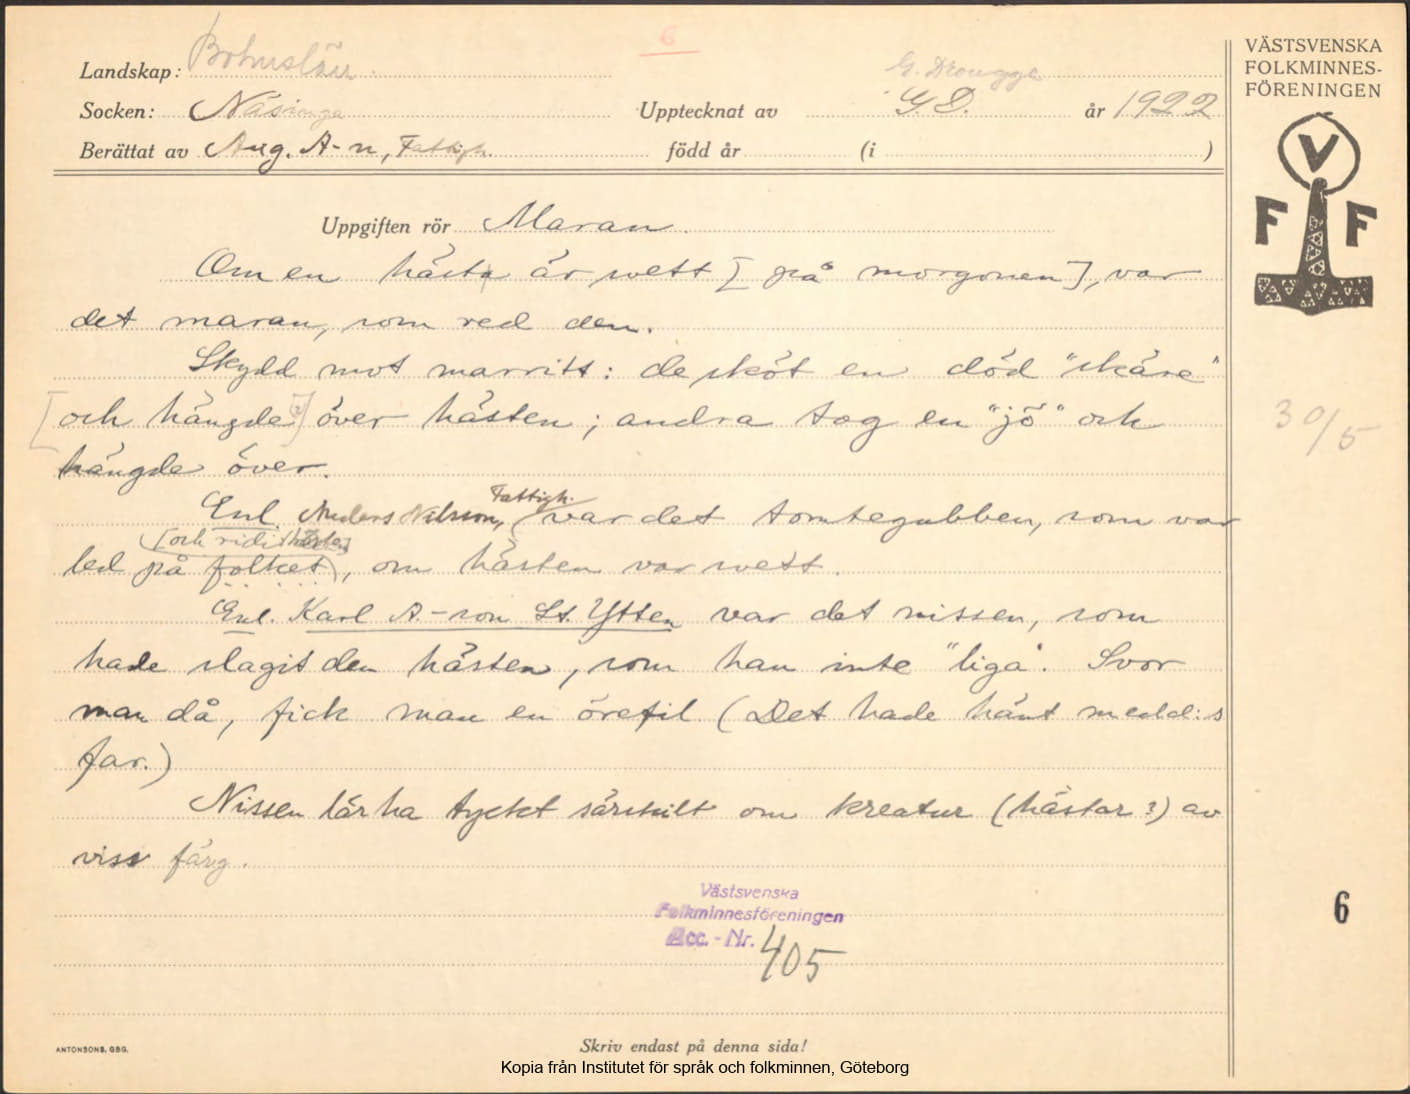 6
Landskap: Bohuslän
G. Drougge
Socken: Näsinge Upptecknat av G. D. år 1922
Berättat av Aug. A-n, Fattigh. född år (i )
VÄSTSVENSKA
FOLKMINNES-
FÖRENINGEN
V
F F
Uppgiften rör Maran.
Om en häst är svett [på morgonen], var
det maran, som red den.
Skydd mot marritt: de sköt en död "skåre"
[och hängde] över hästen; andra tog en "jö" och
hängde över.
Fattigh.
Enl. Anders Nilsson, var det tomtegubben, som var
[och ridit hästen]
led på folket, om hästen var svett.
Enl. Karl A-son St. Ytten var det nissen, som
hade slagit den hästen, som han inte "liga". Svor
man då, fick man en örefil (Det hade hänt medd:s
far.)
Nissen lär ha tyckt särskilt om kreatur (hästar?) av
viss färg.
30/5
6
Västsvenska
Folkminnesföreningen
Acc. - Nr. 405
ANTONSONS, GBG.
Skriv endast på denna sida!
Kopia från Institutet för språk och folkminnen, Göteborg